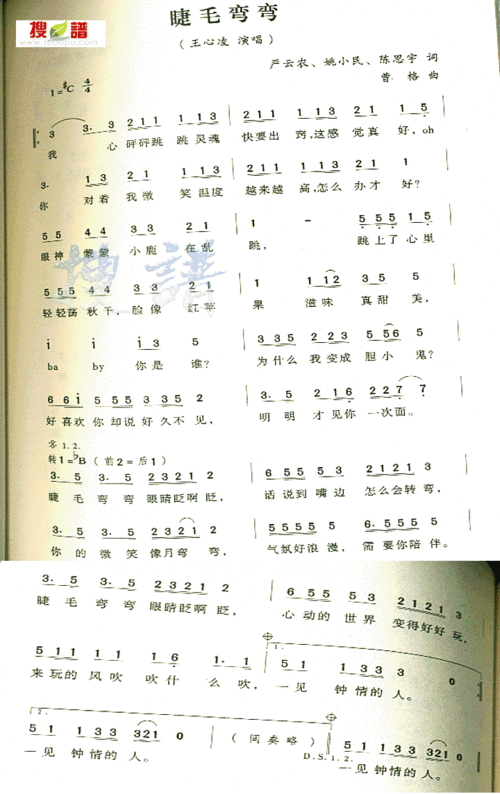 搜谱
睫毛弯弯
(王心凌 演唱)
严云农、姚小民、陈思宇 词
曹格 曲
1=#C 4/4
3 3. 3 2 1 1 1 1 3 2 1 | 3 2 1 1 1 1 3 2 2 1 5
我 心 砰砰跳 跳灵魂 快要出 窍,这感觉真 好,oh
你 对着 我微 笑温度 越来越 高,怎么 办才 好?
5 5 4 4 3 3 2 1 | 1 - 5 5 5 1 5
眼神 紫紫 小鹿 在乱 跳, 跳上了心里
5 5 5 4 4 3 3 2 1 | 1 1 1 2 3 5 5
轻轻荡 秋千,脸像 红苹 果 滋味 真甜 美,
i i i 3 5 | 3 3 5 2 2 3 5 5 6 5
ba by 你是 谁? 为什么 我变成 胆小 鬼?
6 6 i 5 5 5 3 3 5 2 | 3. 5 2 1 6 2 2 7 7
好喜欢 你却说好久不 见, 明 明 才见你 一次面。
转1=bB(前2=后1)
3. 5 3. 5 2 3 2 2 1 2 | 6 5 5 5 5 3 2 1 2 1 3 1
睫 毛 弯 弯 眼睛眨啊 眨, 话说到嘴边 怎么会转 弯,
3. 5 3. 3 2 3 2 2 1 2 | 5 5 5 5 5 6. 5 5 5 5
你 的 微 笑 像月弯 弯, 气氛好浪漫, 需 要你陪 伴。
3. 5 3. 5 2 3 2 2 1 2 | 6 5 5 5 5 3 2 1 2 1 3
睫 毛 弯 弯 眼睛眨啊 眨, 心动的 世界 变得好好 玩,
5 1 1 1 1 1 6 1. 1 1 | 5 1 1 3 3 3 3 0
来玩的 风吹 吹什 么 吹, 一见 钟情的 人。
5 1 1 3 3 3 3 2 1 0 (间奏略) 5 1 1 3 3 3 3 2 1 0
一见 钟情的 人。 D.S.1.2. 一见 钟情的 人。